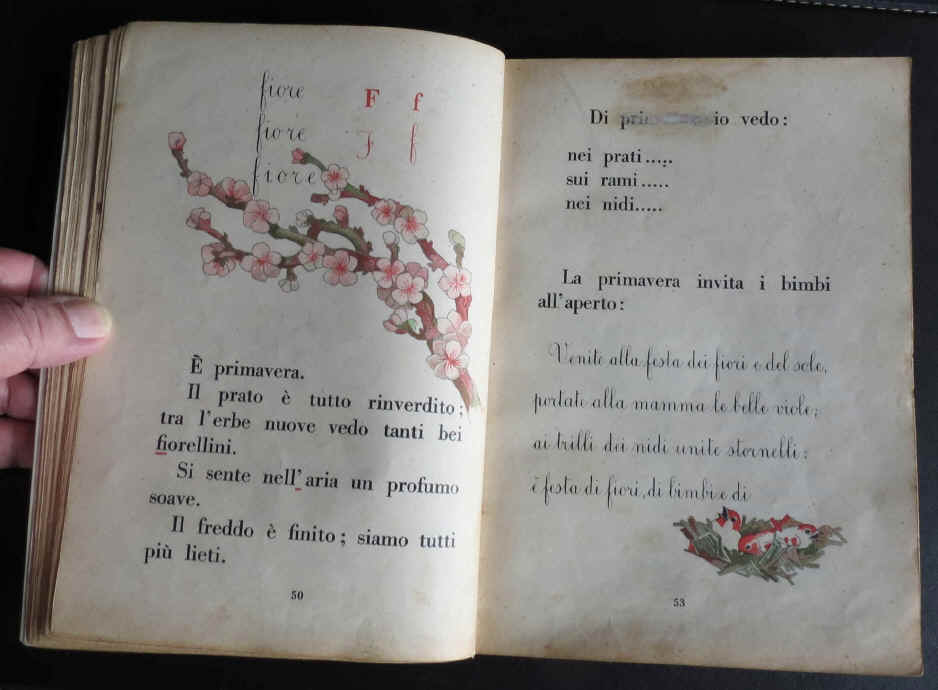 fiore
F f
fiore
F f
fiore
È primavera.
Il prato è tutto rinverdito;
tra l'erbe nuove vedo tanti bei
fiorellini.
Si sente nell'aria un profumo
soave.
Il freddo è finito; siamo tutti
più lieti.
50
Di io vedo:
nei prati.....
sui rami.....
nei nidi.....
La primavera invita i bimbi
all'aperto:
Venite alla festa dei fiori e del sole,
portate alla mamma le belle viole;
ai trilli dei nidi unite stornelli:
è festa di fiori, di bimbi e di
53